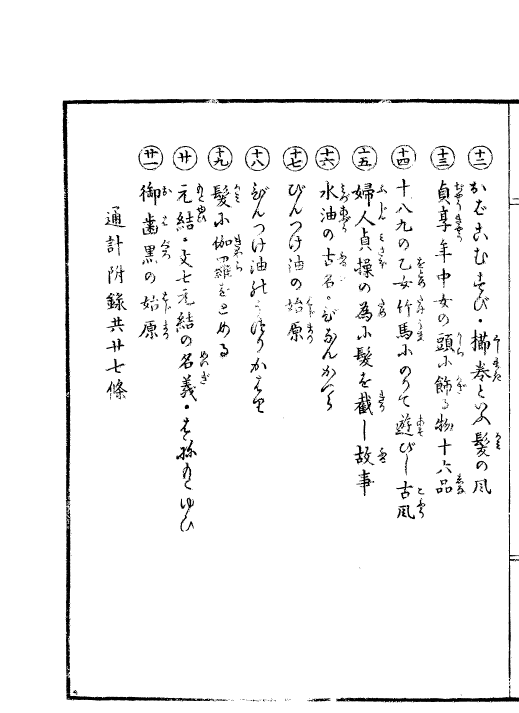 十二 おばこむすび・櫛巻といふ髪の風
十三 貞享年中女の頭に飾る物十六品
十四 十八九の乙女竹馬にのりて遊びし古風
十五 婦人貞操の為に髪を截し故事
十六 水油の古名・びなんかづら
十七 びんつけ油の始原
十八 びんつけ油の
十九 髪に伽羅をとめる
廿 元結・文七元結の名義・はねもとゆひ
廿一 御歯黒の始原
通計附録共廿七條